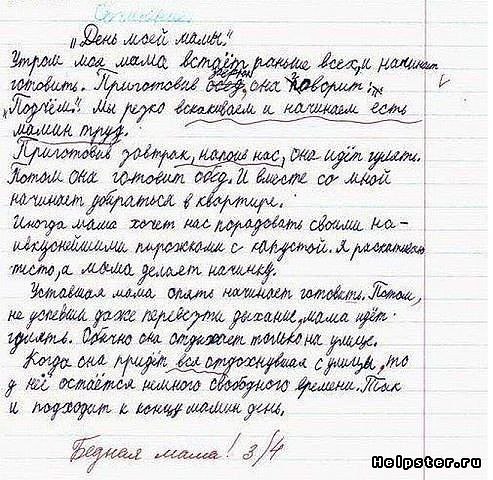 Сочинение
„День моей мамы."
Утром моя мама встаёт раньше всех, и начинает
готовить. Приготовив завтрак, она говорит:
„Подъём". Мы резко вскакиваем и начинаем есть
мамин труд.
Приготовив завтрак, напоив нас, она идёт гулять.
Потом она готовит обед. И вместе со мной
начинает убираться в квартире.
Иногда мама хочет нас порадовать своими на-
ивкуснейшими пирожками с капустой. Я раскатываю
тесто, а мама делает начинку.
Уставшая мама опять начинает готовить. Потом,
не успевши даже перевезти дыхание, мама идёт
гулять. Обычно она отдыхает только на улице.
Когда она придёт вся отдохнувшая с улицы, то
у неё остаётся немного свободного времени. Так
и подходит к концу мамин день.
Бедная мама! 3/4
Helpster.ru